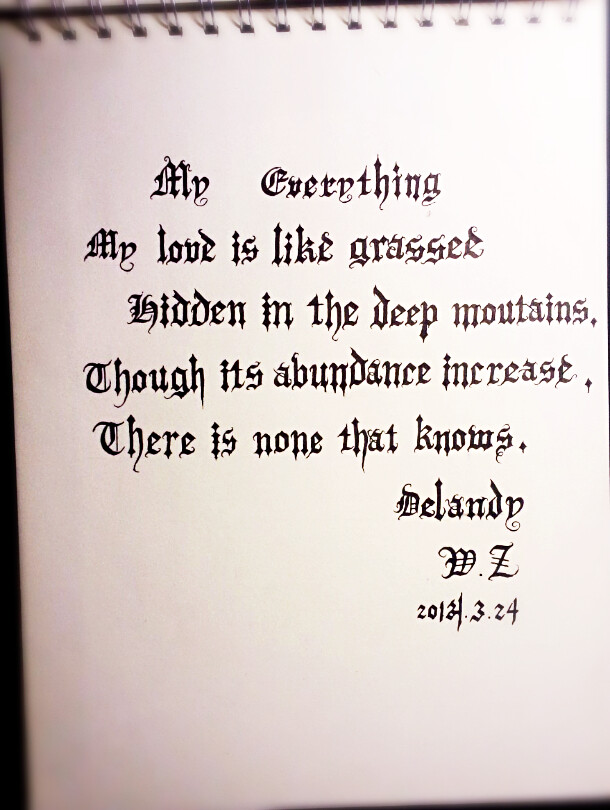 My Everything
My love is like grassee
Hidden in the deep moutains.
Though its abundance increase,
There is none that knows.
Delandy
W.Z
2013.3.24